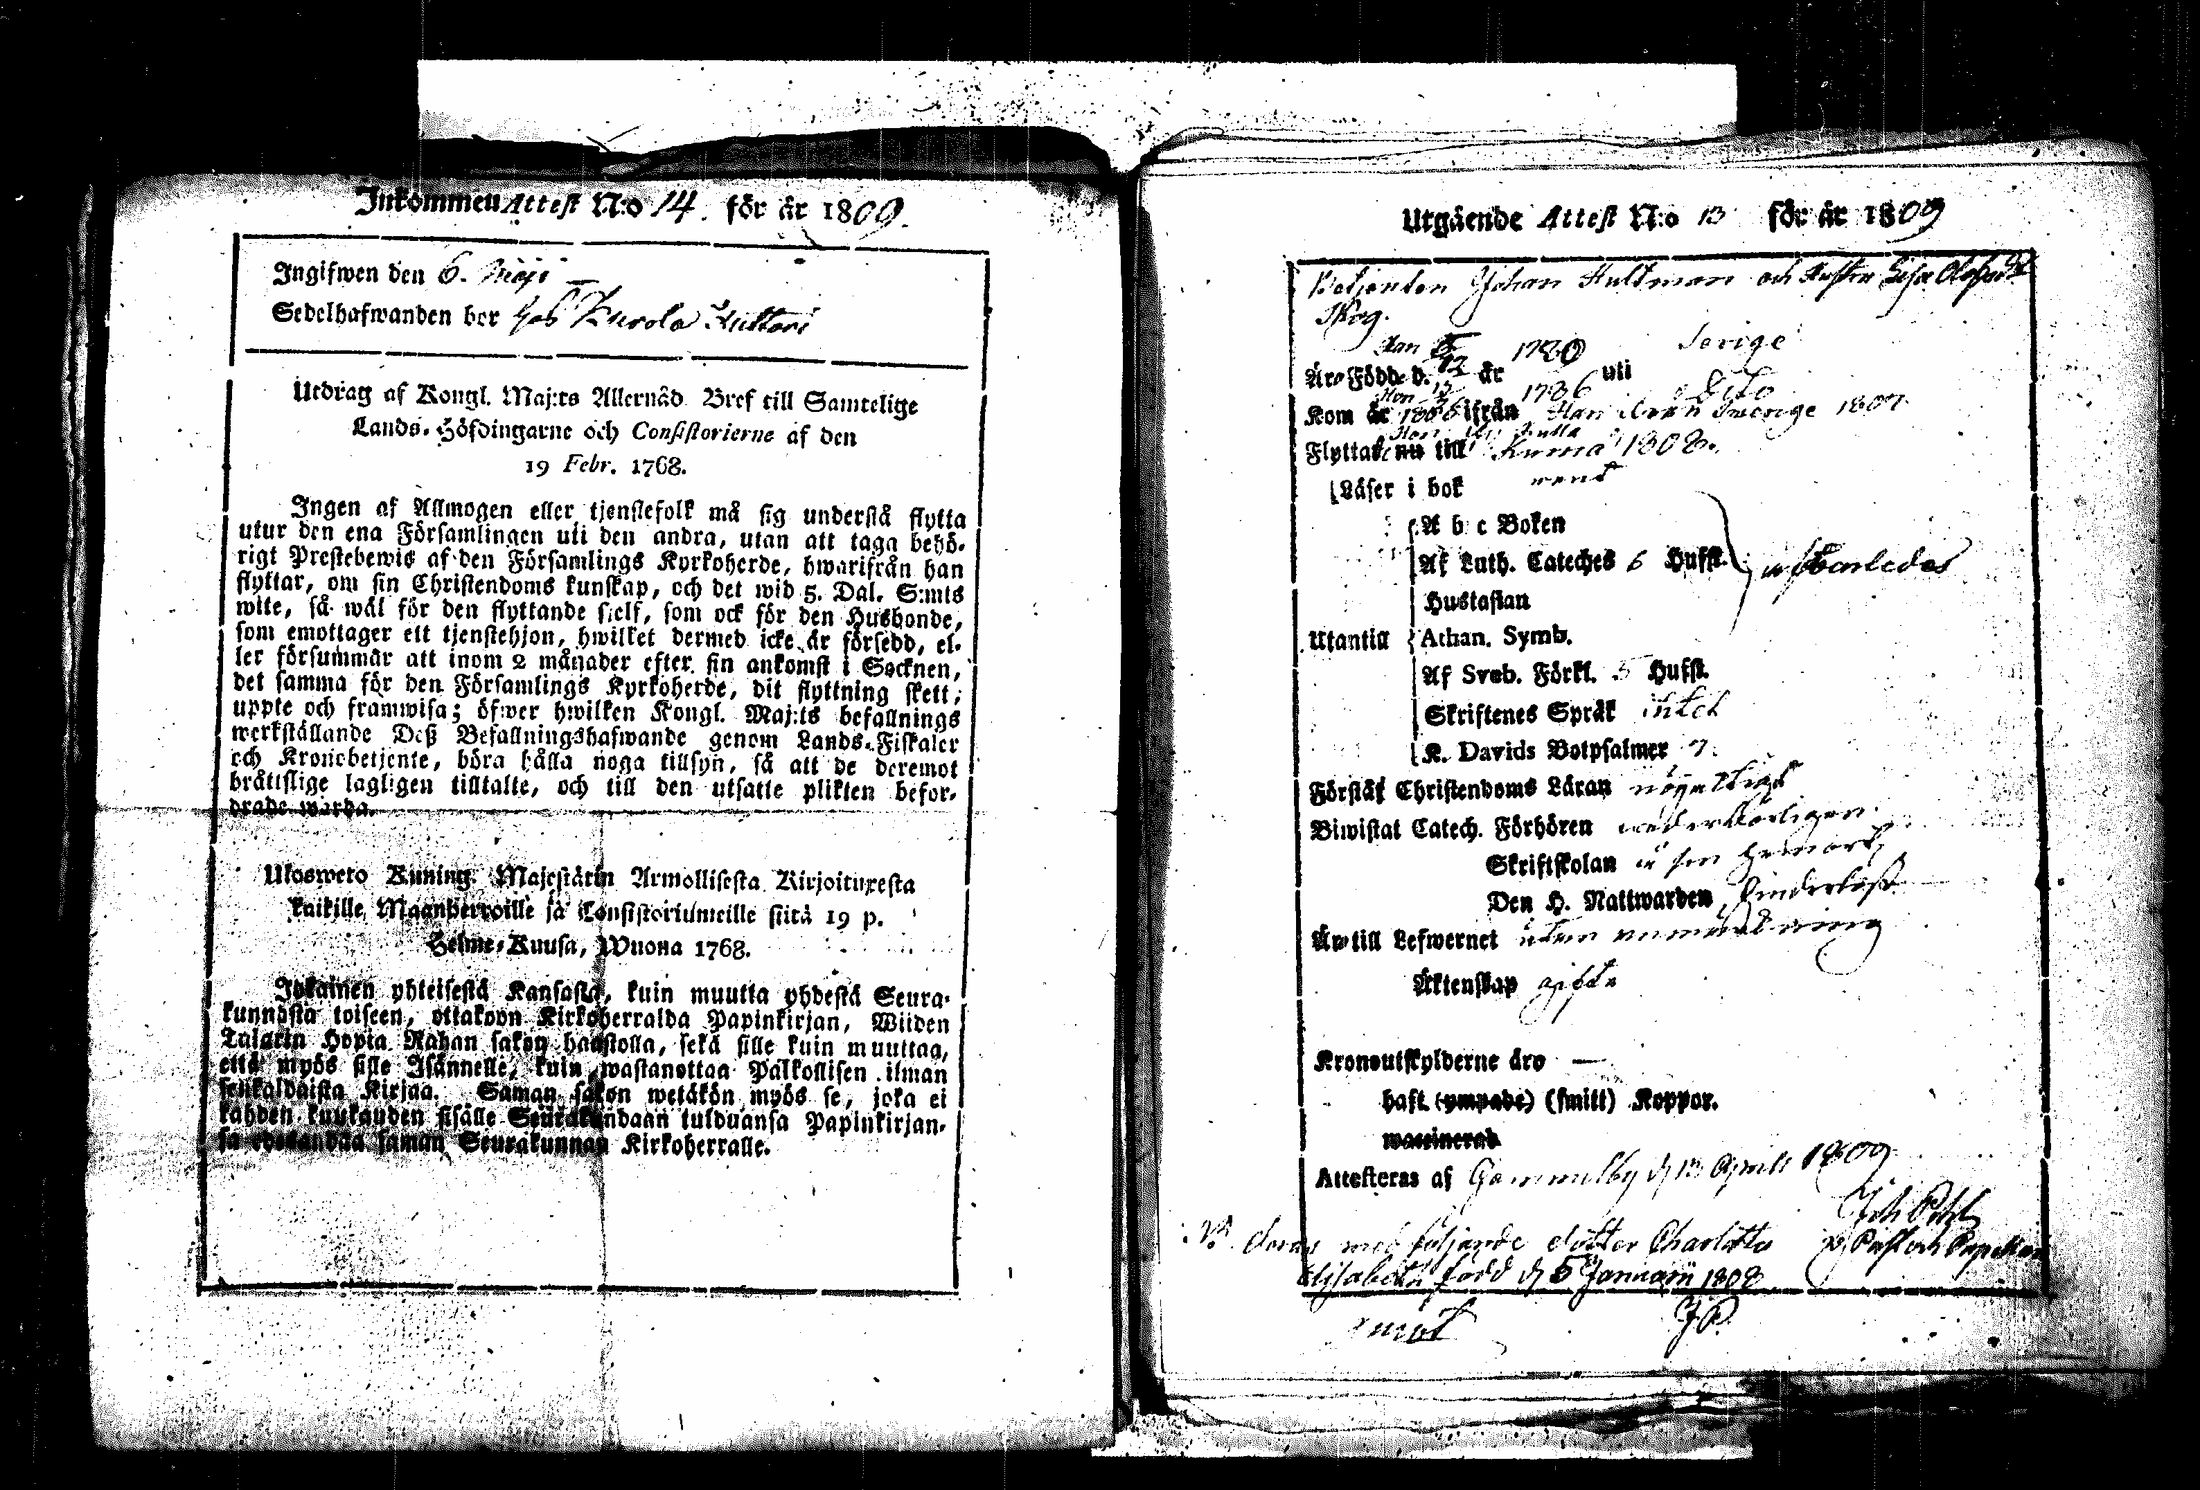 Inkommen Attest N:o 14. för år 1809.
Ingifwen den 6. Maji
Sedelhafwanden bor hos Kurola Kuttari
Utdrag af Kongl. Maj:ts Allernåd. Bref till Samtelige
Lands-Höfdingarne och Consistorierne af den
19 Febr. 1768.
Ingen af Allmogen eller tjenstefolk må sig understå flytta
utur den ena Församlingen uti den andra, utan att taga behö-
rigt Prestebewis af den Församlings Kyrkoherde, hwarifrån han
flyttar, om sin Christendoms kunskap, och det wid 5. Dal. S:mts
wite, så wäl för den flyttande sielf, som ock för den Husbonde,
som emottager ett tjenstehjon, hwilket dermed icke är försedd, el-
ler försummar att inom 2 månader efter sin ankomst i Socknen,
det samma för den Församlings Kyrkoherde, dit flyttning skett,
uppte och framwisa; öfwer hwilken Kongl. Maj:ts befallnings
werkställande Deß Befallningshafwande genom Lands-Fiskaler
och Kronobetjente, böra hålla noga tillsyn, så att de deremot
bråttslige lagligen tilltalte, och till den utsatte plikten befor-
drade warda.
Ulosweto Kuning. Majestätin Armollisesta Kirjoituxesta
kaikille Maanherroille ja Consistoriumeille siitä 19 p.
Helme-Kuusa, Wuona 1768.
Jokainen yhteisestä Kansasta, kuin muutta yhdestä Seura-
kunnasta toiseen, ottakoon Kirkoherralda Papinkirjan, Wiiden
Talarin Hopia Rahan sakon haastolla, sekä sille kuin muuttaa,
että myös sille Isännelle, kuin wastanottaa Palkollisen ilman
senkaldaista Kirjaa. Saman sakon wetäkön myös se, joka ei
kahden kuukauden sisälle Seurakundaan tulduansa Papinkirjan-
sa edesandaa saman Seurakunnan Kirkoherralle.
Utgående Attest N:o 13 för år 1809
Betjenten Johan Hultman och Hustru Lisa Olofsdr
Skog.
Han 1780 Sverige
Äro Födde d. 12 år 1786 uti
Kom år ifrån Han ifrån Sverige 1807
Flyttade nu till Kumo 1808.
Läser i bok rent
A b c Boken
Af Luth. Cateches 6 Hufst.
Hustaflan
Utantill Athan. Symb.
Af Sveb. Förkl. 5 Hufst.
Skriftenes Språk intet
K. Davids Botpsalmer 7.
Förstår Christendoms Läran nöjaktigt
Biwistat Catech. Förhören wederbörligen
Skriftskolan å sin hemort
Den H. Nattwarden hinderlöst
Äro till Lefwernet utan anmärkning
Äktenskap gifte
Kronoutskylderne äro —
haft (ympade) (smitt) Koppor.
waccinerad
Attesteras af Gammelby d 13 April 1809
Joh
NB. deras medföljande dotter Charlotta
Elisabeth född d 5 Januarii 1808
J P.